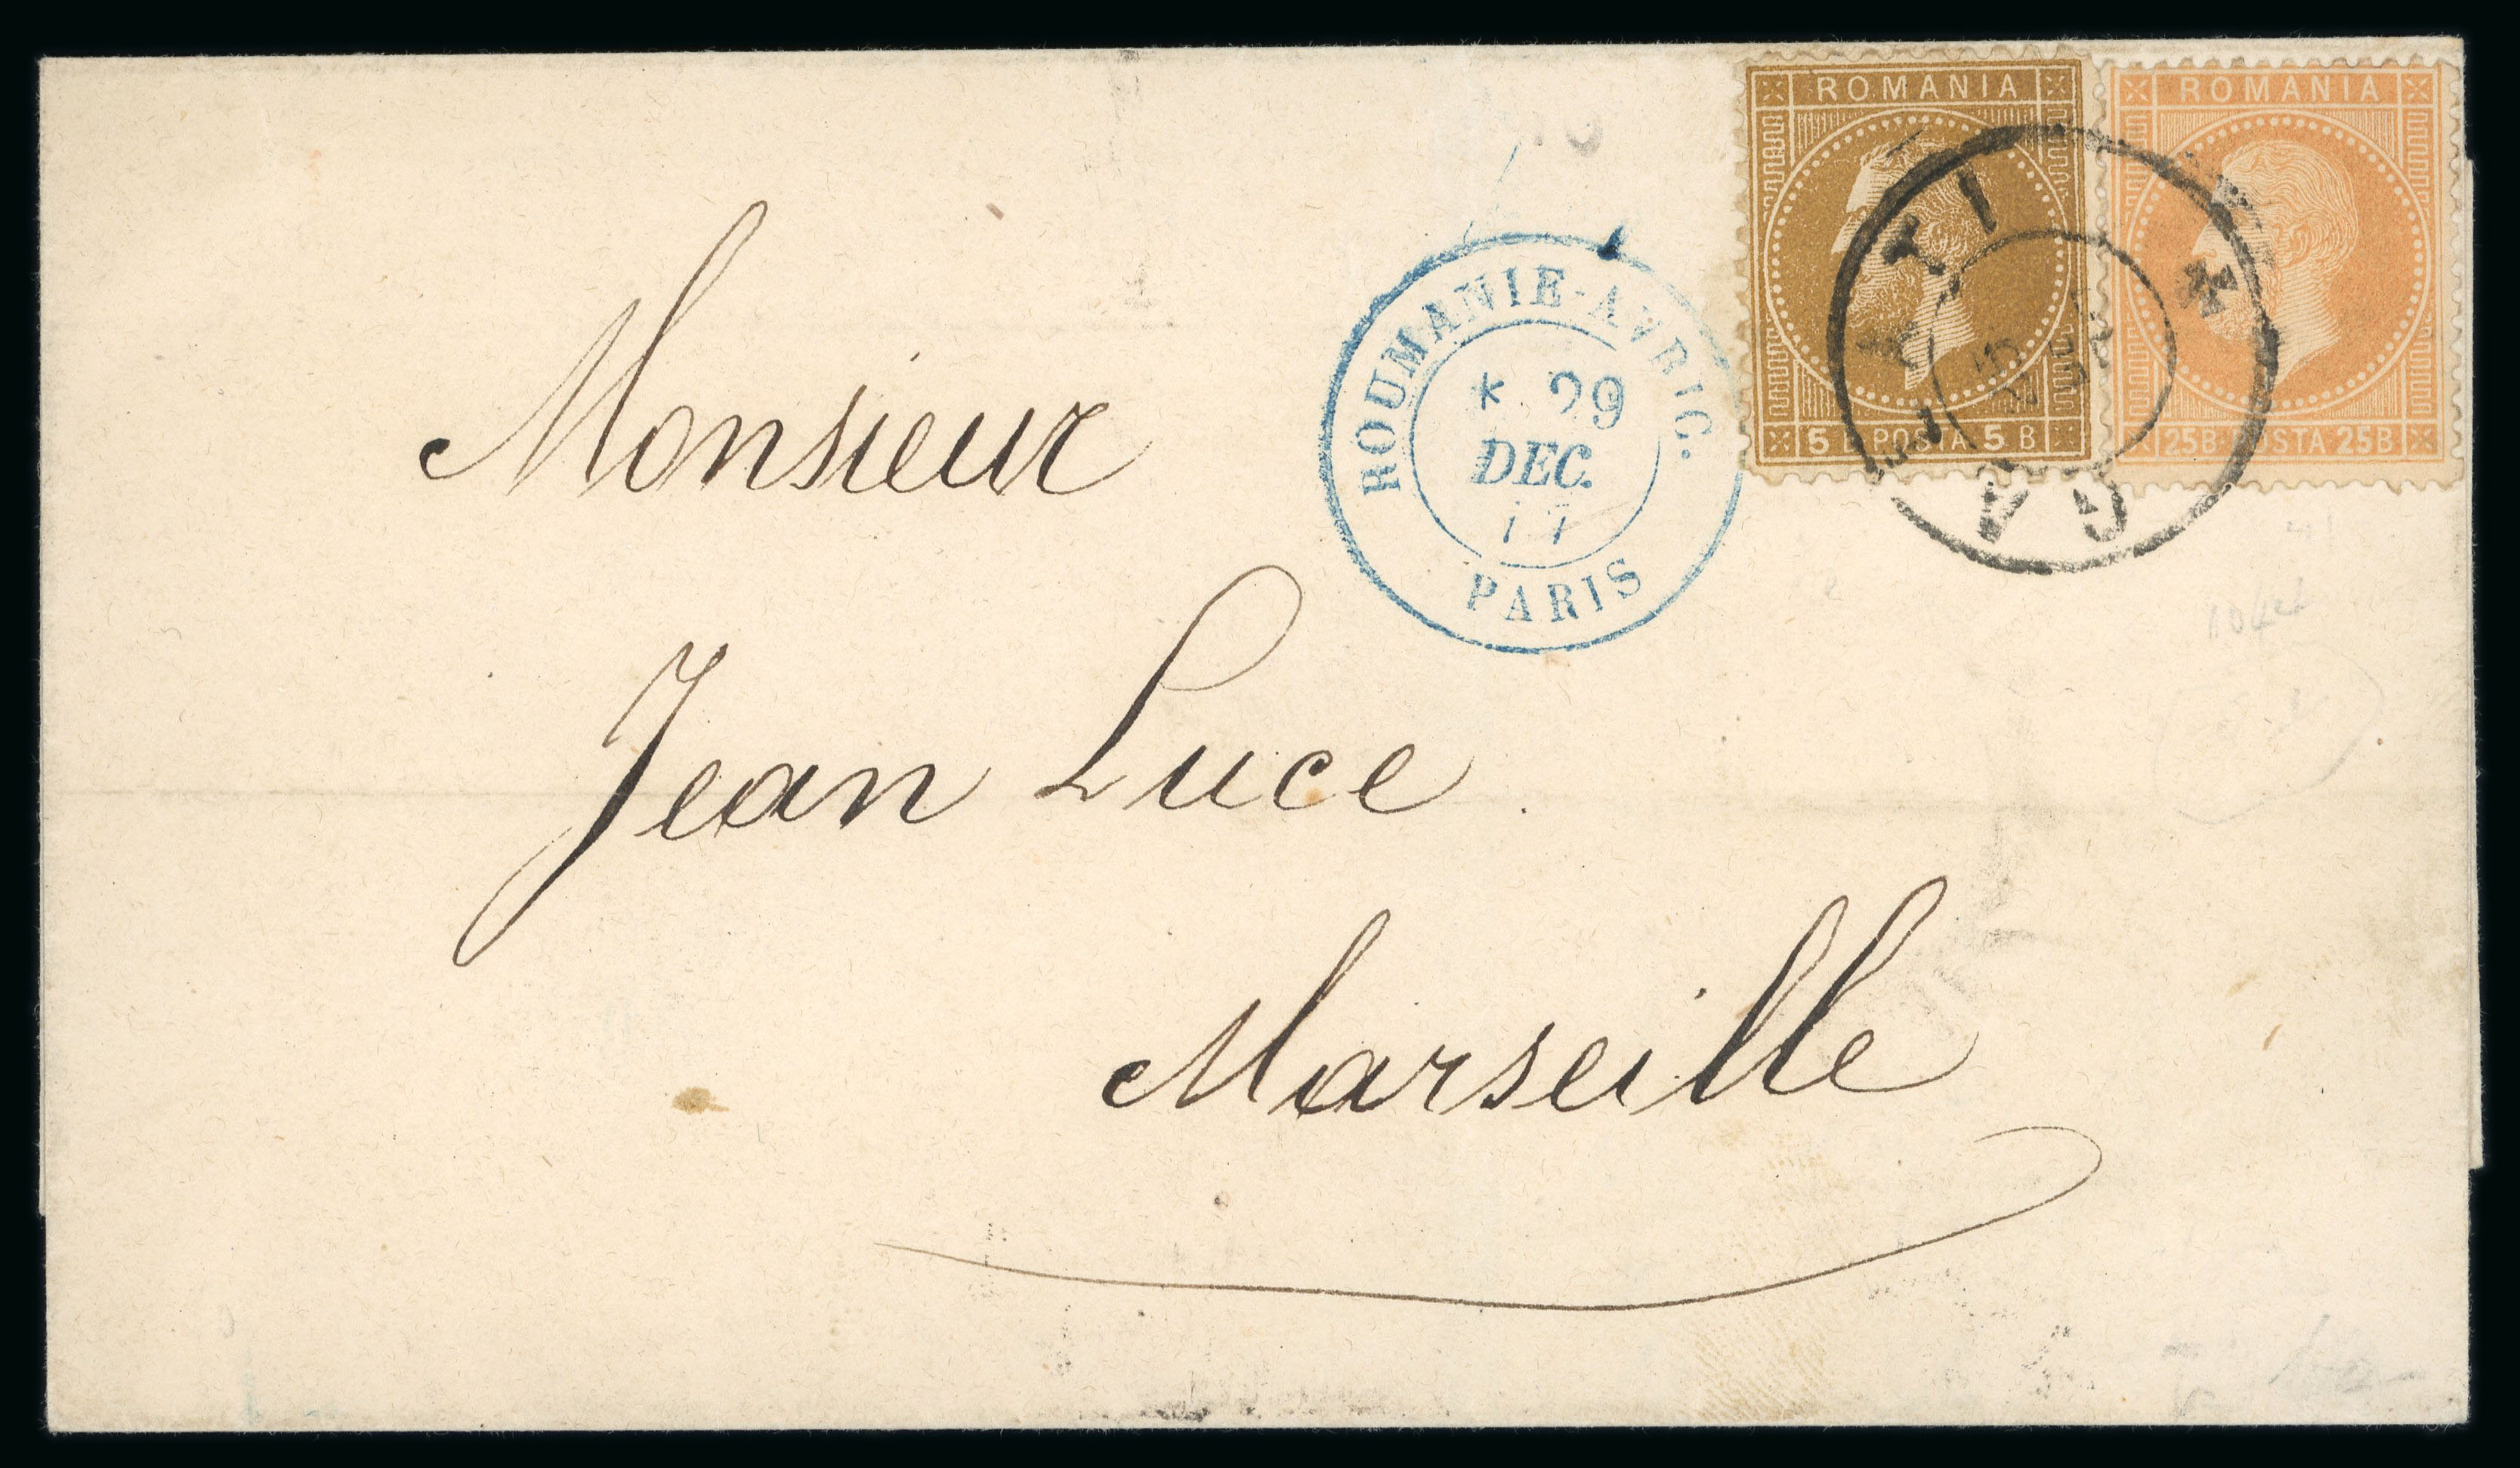 ROMANIA
5 B POSTA 5 B
ROMANIA
25B POSTA 25B
GALATI
ROUMANIE-AVRIC.
* 29
DEC.
77
PARIS
Monsieur
Jean Luce
Marseille